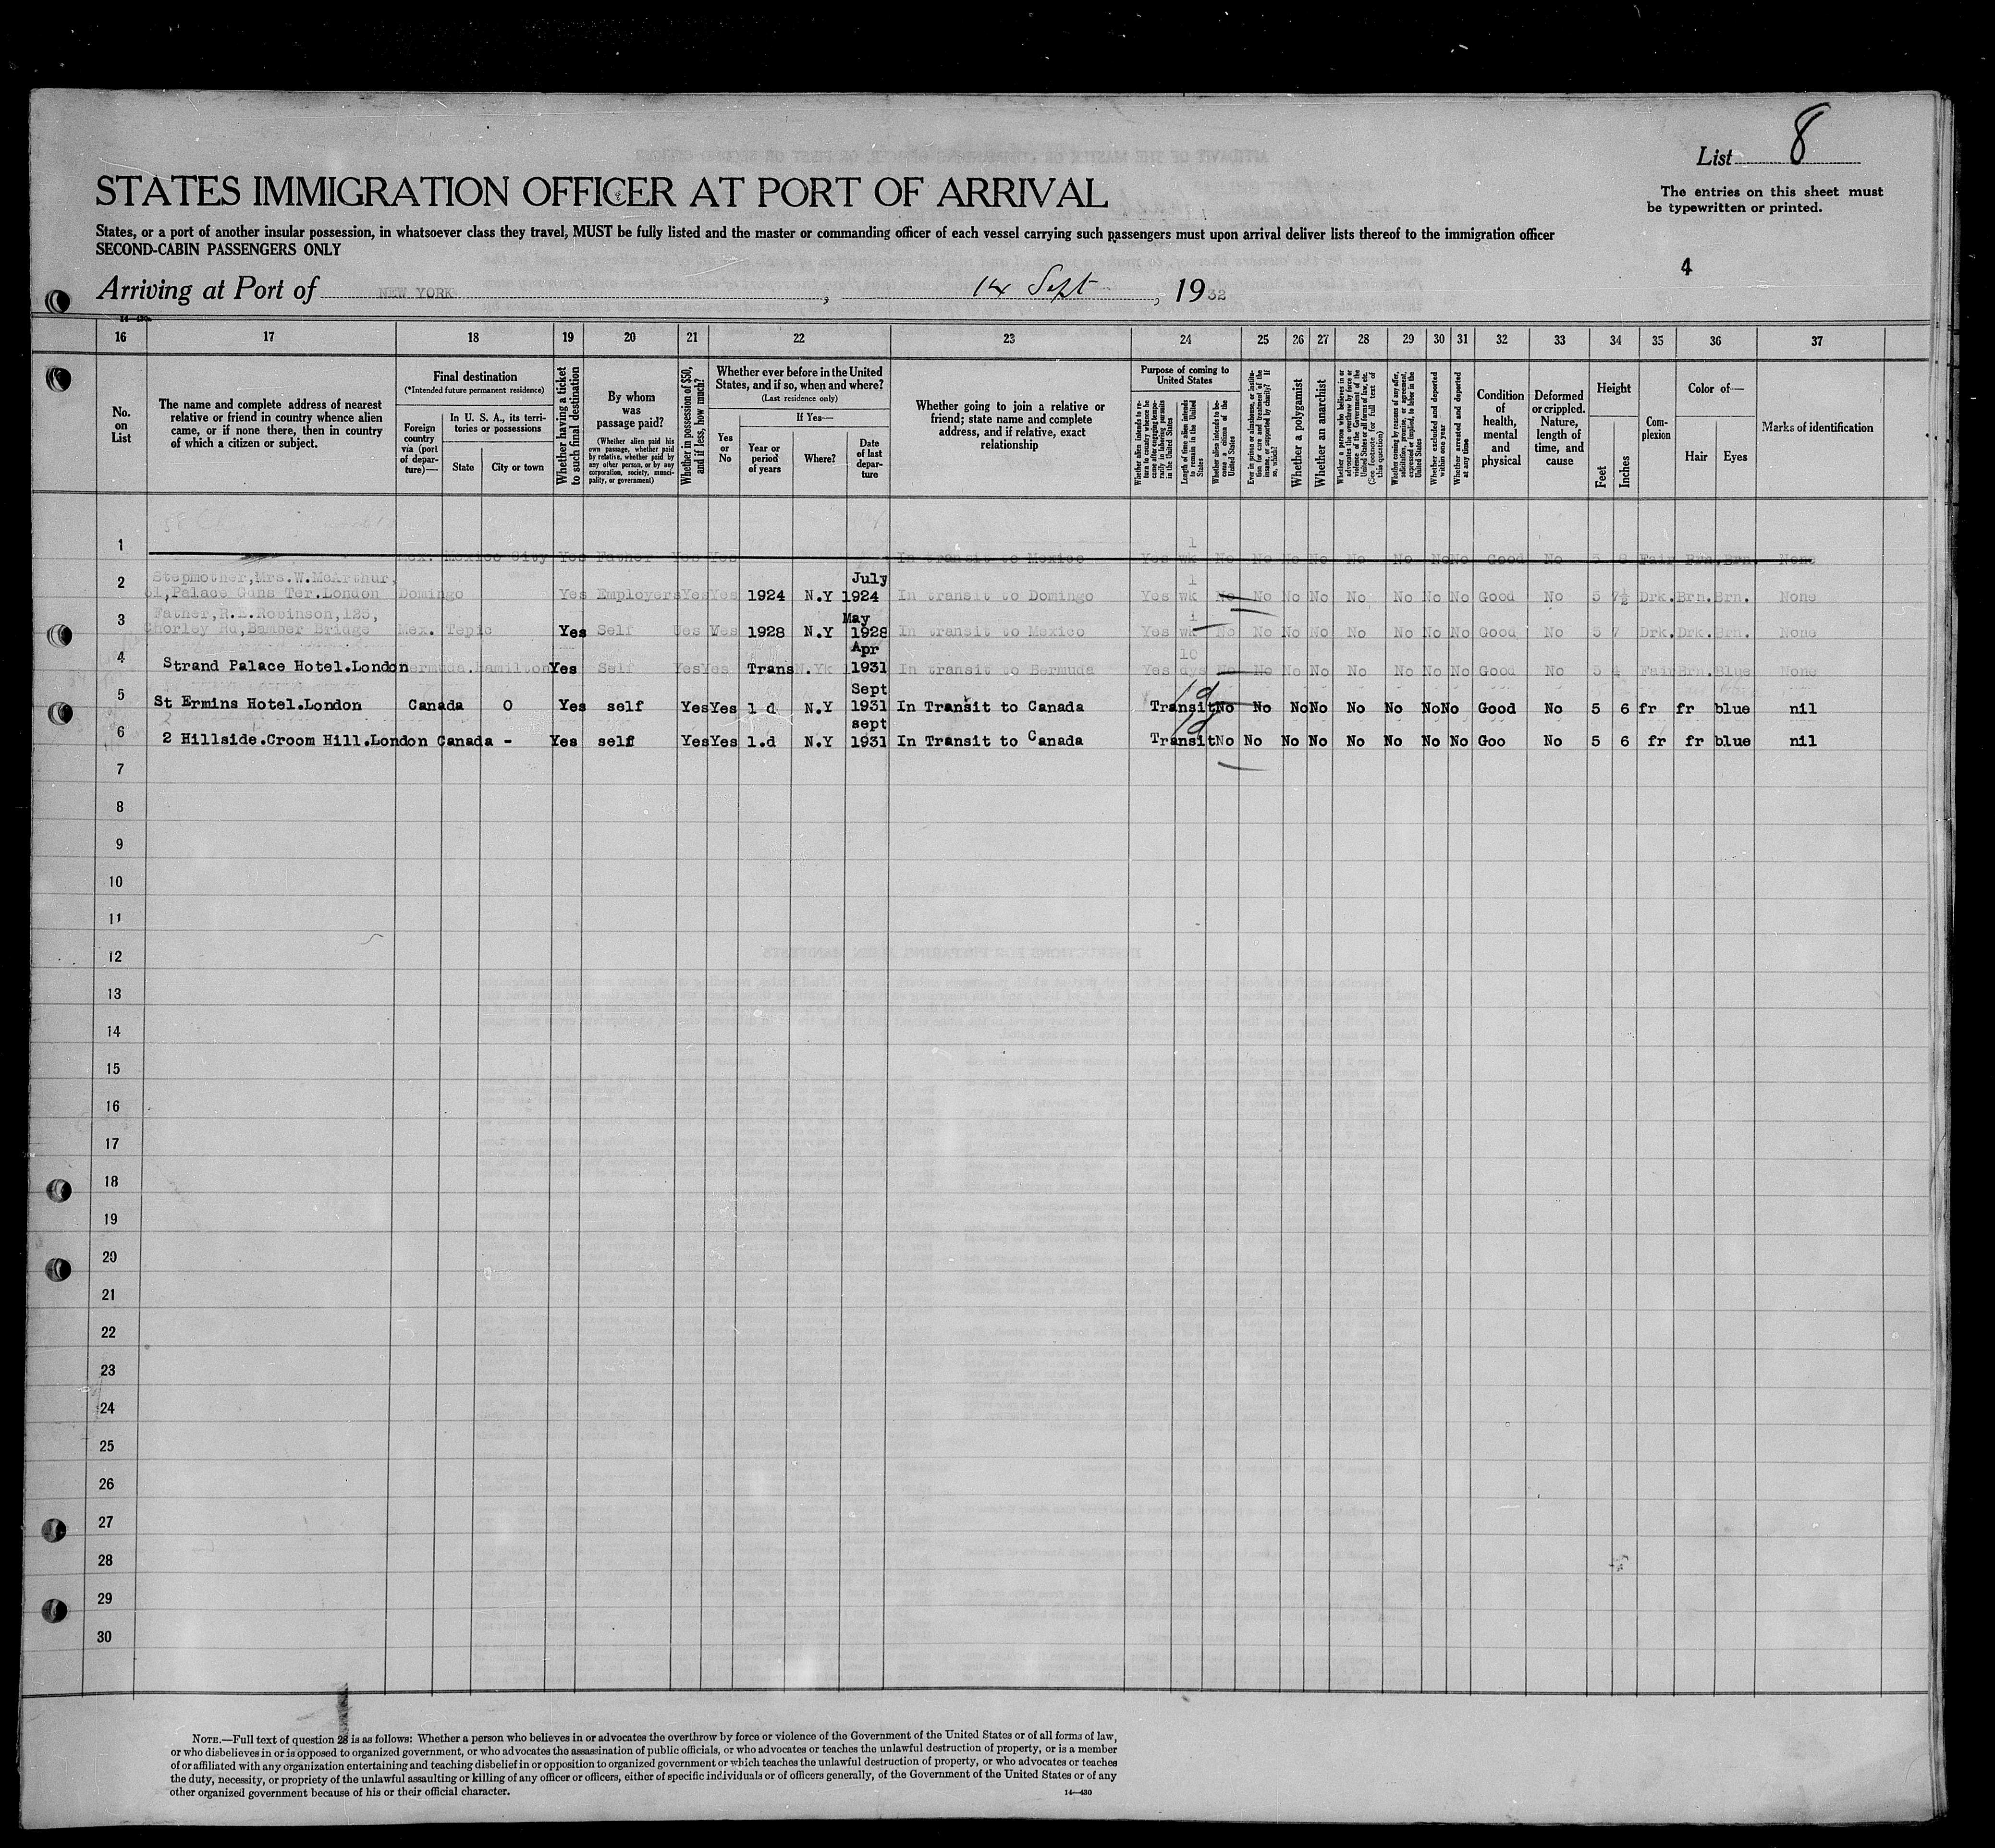 List 8
The entries on this sheet must
be typewritten or printed.
STATES IMMIGRATION OFFICER AT PORT OF ARRIVAL
States, or a port of another insular possession, in whatsoever class they travel, MUST be fully listed and the master or commanding officer of each vessel carrying such passengers must upon arrival deliver lists thereof to the immigration officer
SECOND-CABIN PASSENGERS ONLY
4
Arriving at Port of NEW YORK, 14 Sept, 1932
16 17 18 19 20 21 22 23 24 25 26 27 28 29 30 31 32 33 34 35 36 37
No.
on
List
The name and complete address of nearest
relative or friend in country whence alien
came, or if none there, then in country
of which a citizen or subject.
Final destination
(*Intended future permanent residence)
Foreign
country
via (port
of depar-
ture)—
In U. S. A., its terri-
tories or possessions
State
City or town
Whether having a ticket
to such final destination
By whom
was
passage paid?
(Whether alien paid his
own passage, whether paid
by relative, whether paid by
any other person, or by any
corporation, society, munici-
pality, or government)
Whether in possession of $50,
and if less, how much?
Whether ever before in the United
States, and if so, when and where?
(Last residence only)
Yes
or
No
If Yes—
Year or
period
of years
Where?
Date
of last
depar-
ture
Whether going to join a relative or
friend; state name and complete
address, and if relative, exact
relationship
Purpose of coming to
United States
Whether alien intends to re-
turn to country whence he
came after engaging tempo-
rarily in laboring pursuits
in the United States
Length of time alien intends
to remain in the United
States
Whether alien intends to be-
come a citizen of the
United States
Ever in prison or almshouse, or institu-
tion for care and treatment of the
insane, or supported by charity? If
so, which?
Whether a polygamist
Whether an anarchist
Whether a person who believes in or
advocates the overthrow by force or
violence of the Government of the
United States or all forms of law, etc.
(See footnote for full text of
this question)
Whether coming by reasons of any offer,
solicitation, promise, or agreement,
expressed or implied, to labor in the
United States
Whether excluded and deported
within one year
Whether arrested and deported
at any time
Condition
of
health,
mental
and
physical
Deformed
or crippled.
Nature,
length of
time, and
cause
Height
Feet
Inches
Com-
plexion
Color of—
Hair
Eyes
Marks of identification
1 Mex. Mexico City Yes Father Yes Yes In transit to Mexico Yes 1 wk No No No No No No No No Good No 5 8 Fair Brn. Brn. None
2 Stepmother, Mrs. W. McArthur,
61, Palace Gdns Ter. London Domingo Yes Employers Yes Yes 1924 N.Y July 1924 In transit to Domingo Yes 1 wk No No No No No No No No Good No 5 7½ Drk. Brn. Brn. None
3 Father, R.E. Robinson, 125,
Chorley Rd, Bamber Bridge Mex. Tepic Yes Self Yes Yes 1928 N.Y May 1928 In transit to Mexico Yes 1 wk No No No No No No No No Good No 5 7 Drk. Drk. Brn. None
4 Strand Palace Hotel. London Bermuda. Hamilton Yes Self Yes Yes Trans N. Yk Apr 1931 In transit to Bermuda Yes 10 dys No No No No No No No No Good No 5 4 Fair Brn. Blue None
5 St Ermins Hotel. London Canada O Yes self Yes Yes 1 d N.Y Sept 1931 In Transit to Canada Transit 1d No No No No No No No No Good No 5 6 fr fr blue nil
6 2 Hillside. Croom Hill. London Canada - Yes self Yes Yes 1.d N.Y sept 1931 In Transit to Canada Transit 1d No No No No No No No No Goo No 5 6 fr fr blue nil
7
8
9
10
11
12
13
14
15
16
17
18
19
20
21
22
23
24
25
26
27
28
29
30
NOTE.—Full text of question 28 is as follows: Whether a person who believes in or advocates the overthrow by force or violence of the Government of the United States or of all forms of law,
or who disbelieves in or is opposed to organized government, or who advocates the assassination of public officials, or who advocates or teaches the unlawful destruction of property, or is a member
of or affiliated with any organization entertaining and teaching disbelief in or opposition to organized government or which teaches the unlawful destruction of property, or who advocates or teaches
the duty, necessity, or propriety of the unlawful assaulting or killing of any officer or officers, either of specific individuals or of officers generally, of the Government of the United States or of any
other organized government because of his or their official character.
14—430